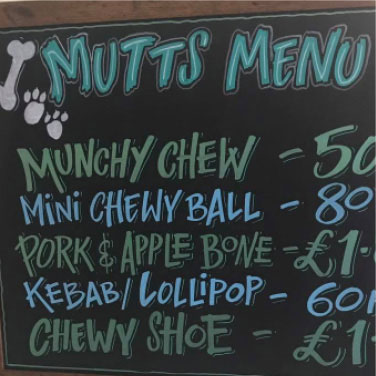 MUTTS MENU
MUNCHY CHEW - 50
MINI CHEWY BALL - 80
PORK & APPLE BONE - £1.
KEBAB/LOLLIPOP - 60
CHEWY SHOE - £1